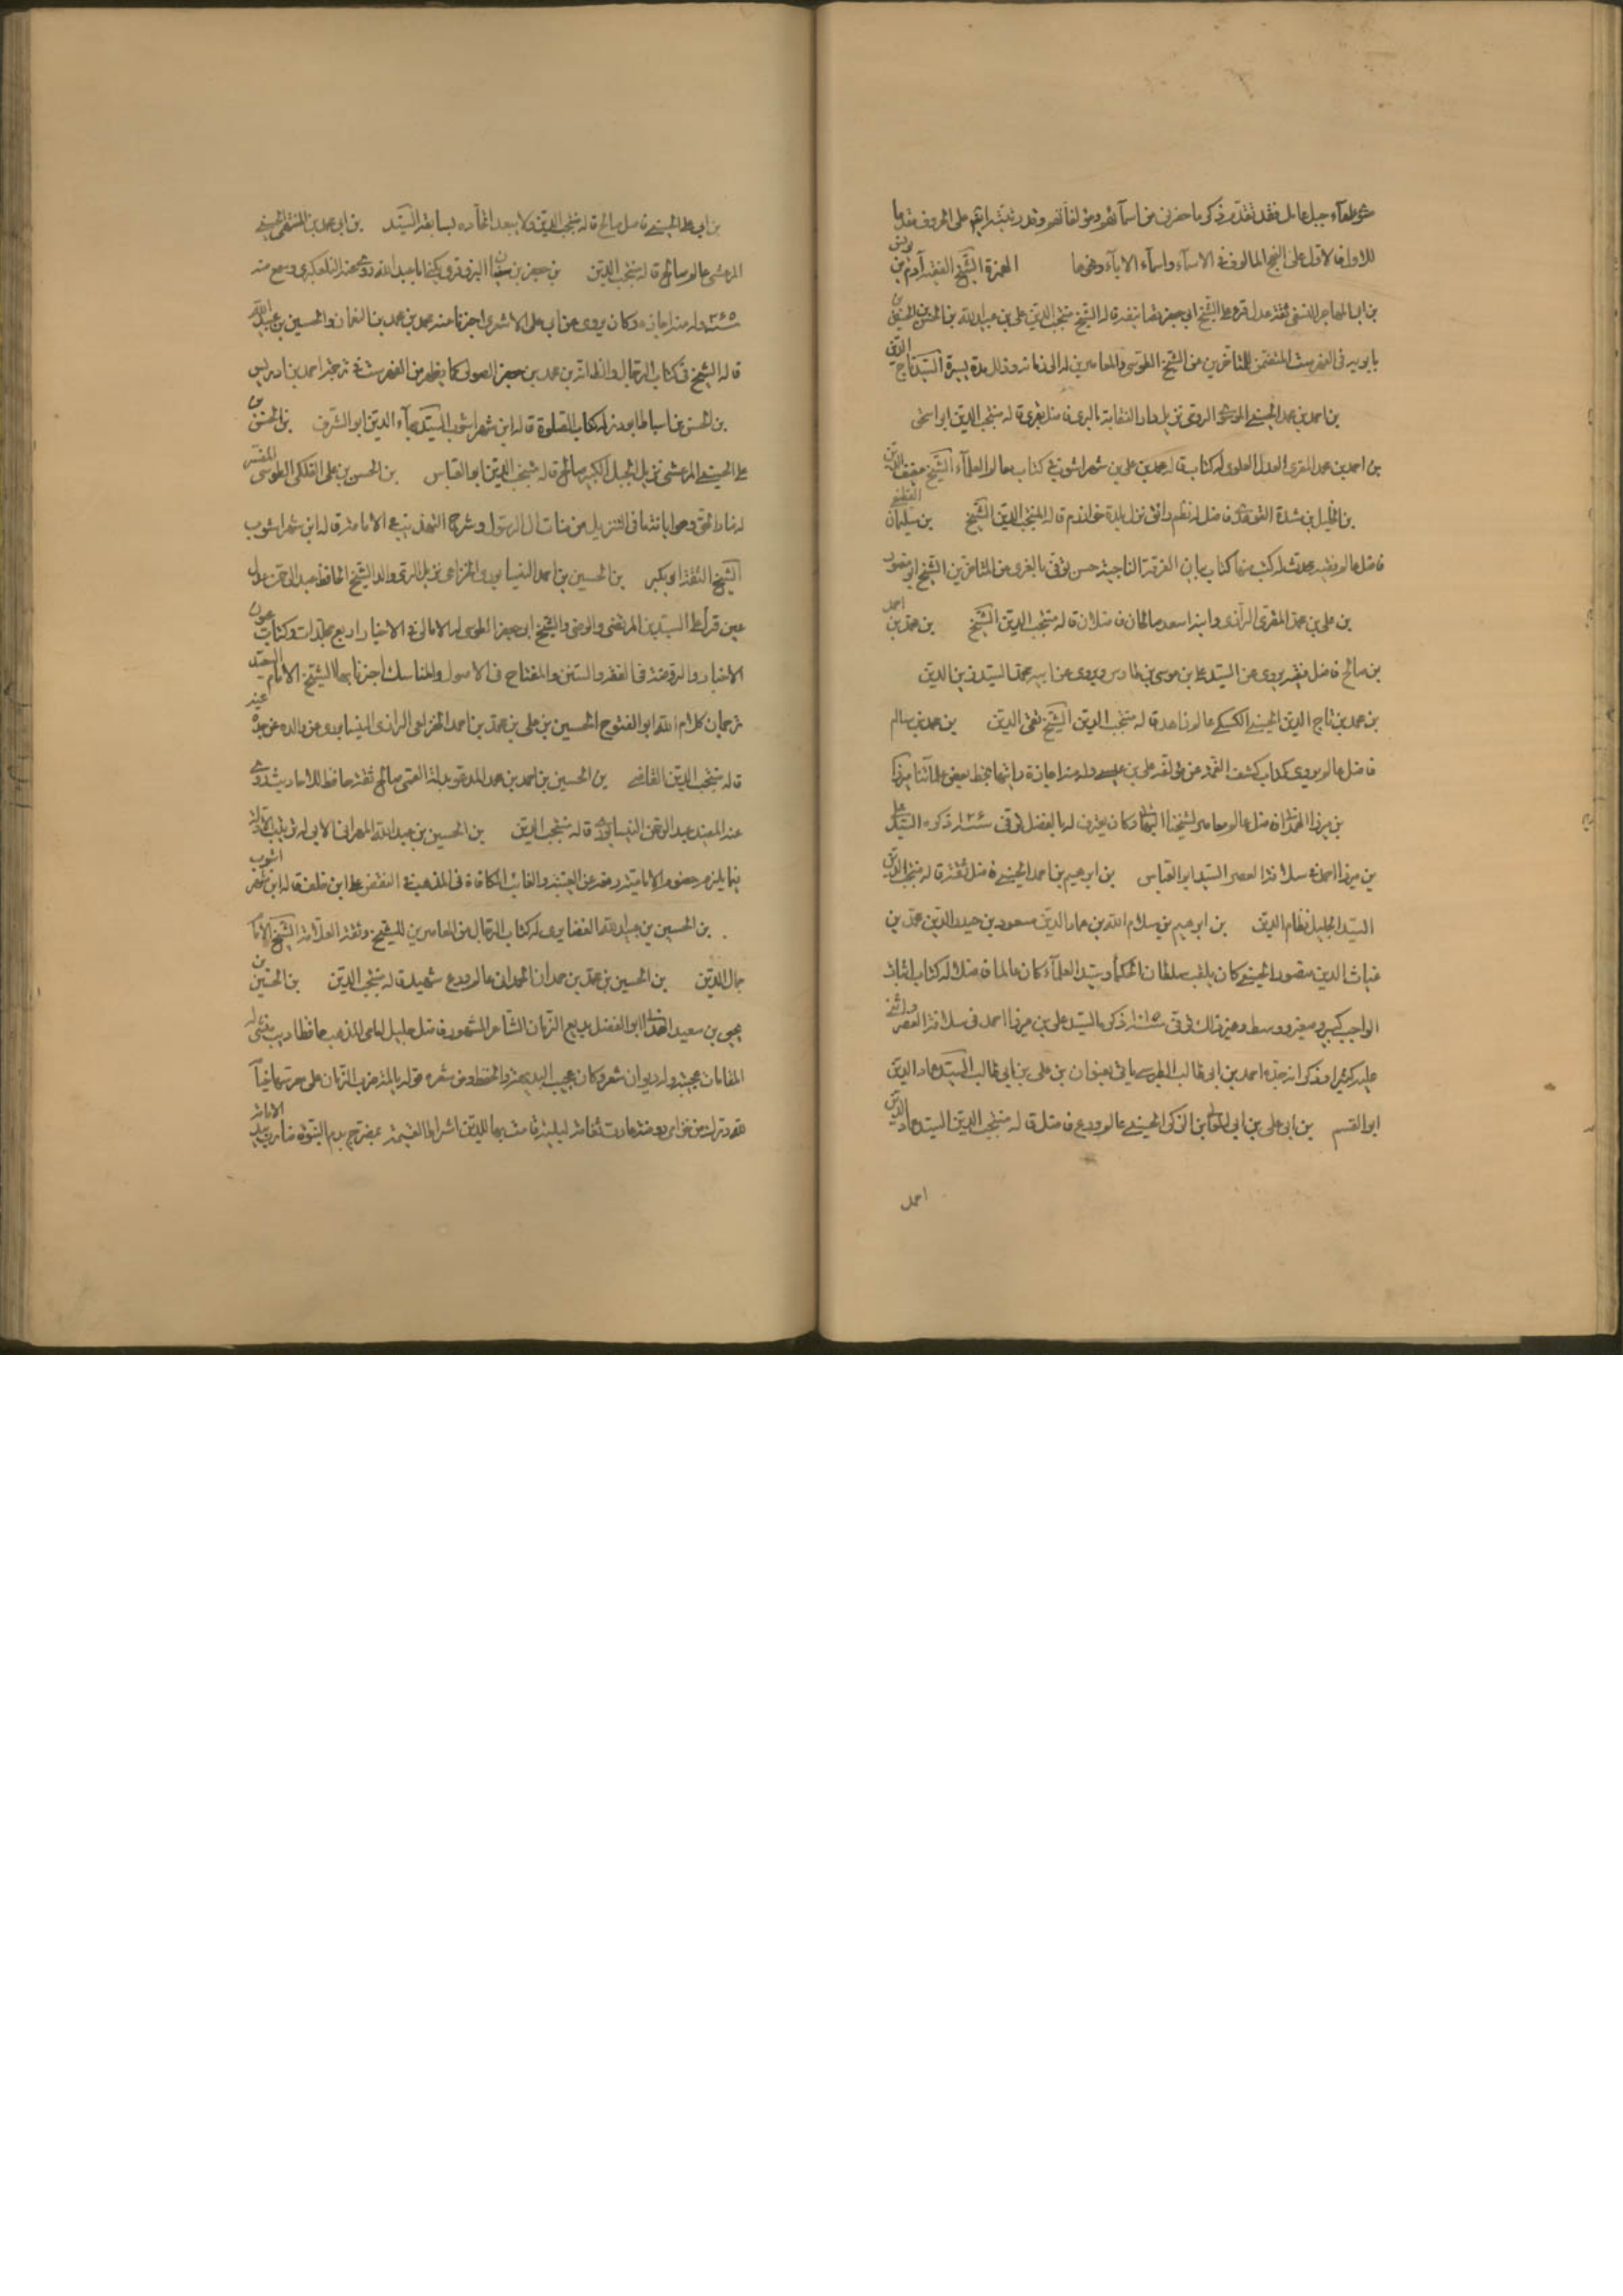 سوى علماء جبل عامل فقد تقدم ذكر ما حضرنى من اسمائهم ومؤلفاتهم وقد رتبته ايضا على الحروف مقدما
للاول فالاول على النهج المالوف فى الاسماء واسماء الاباء وغيرها الهمزة الشيخ الفقيه آدم بن يونس
بن ابى المهاجر النسفى ثقة عدل قرء على الشيخ ابى جعفر تصانيفه قاله الشيخ منتجب الدين على بن عبيد الله بن الحسن بن الحسين بن
بابويه فى الفهرست المتضمن للمتأخرين من الشيخ الطوسى والمعاصرين له الى زمانه وقد للمدة يسيرة السيد تاج الدين
بن احمد بن محمد الحسينى الموسوى الرومى نزيل دار النقابة بالرى فاضل مقرى قاله منتجب الدين ابو اسحق
بن احمد بن محمد المقرى العدل العلوى له كتاب قاله محمد بن على بن شهراشوب فى كتاب معالم العلماء الشيخ عفيف الدين
بن الخليل بن شدة فاضل له نظم رائق نزل بلدة خوارزم قاله منتجب الدين الشيخ بن سليمان القطيفى
فاضل عالم فقيه محدث له كتب منها كتاب بيان الفرقة الناجية حسن توفى بالغرى من المتاخرين الشيخ ابو منصور
بن على بن محمد المقرى الرازى وابنه اسعد صالحان فاضلان قاله منتجب الدين الشيخ بن محمد بن احمد
بن صالح فاضل فقيه يروى عن السيد على بن موسى بن طاوس ويروى عن ابيه محمد السيد زين الدين
بن محمد بن تاج الدين الحسينى الكسكى عالم زاهد قاله منتجب الدين الشيخ تقى الدين بن محمد بن سالم
فاضل عالم يروى كتاب كشف الغمة عن مؤلفه على بن عيسى وله منه اجازة رايتها بخط بعض علمائنا ميرزا
بن ميرزا الهمدانى فاضل عالم معاصر لشيخنا البهائى وكان يعترف له بالفضل توفى سنة ١٠٢٦ ذكره السيد على
بن ميرزا احمد فى سلافة العصر السيد ابو العباس بن ابرهيم بن احمد الحسينى فاضل ثقة قاله منتجب الدين
السيد الجليل نظام الدين بن ابرهيم بن سلام الله بن عماد الدين مسعود بن صدر الدين محمد بن
غياث الدين منصور الحسينى كان يلقب سلطان الحكماء وسيد العلماء كان عالما فاضلا له كتاب اثبات
الواجب كبير وصغير ووسط وغير ذلك توفى سنة ١٠١٥ ذكره السيد على بن ميرزا احمد فى سلافة العصر واثنى
عليه كثيرا وذكر انه جده احمد بن ابى طالب الطبرسى ياتى بعنوان بن على بن ابى طالب السيد عماد الدين
ابو القسم بن ابى على بن ابى المعالى بن الزكى الحسينى عالم ورع فاضل قاله منتجب الدين السيد عماد الدين
احمد
بن ابى على الحسينى فاضل صالح قاله منتجب الدين ولا يبعد اتحاده بسابقه السيد بن ابى محمد بن المنتهى الحسينى
المرعشى عالم صالح قاله منتجب الدين بن جعفر بن سفيان البزوفرى يكنى ابا عبد الله روى عنه التلعكبرى وسمع منه
سنة ٣٦٥ وله منه اجازة وكان يروى عن ابى على الاشعرى اخبرنا عنه محمد بن محمد بن النعمان والحسين بن عبيد الله
قاله الشيخ فى كتاب الرجال والظاهر انه بن محمد بن جعفر الصولى كما يظهر من الفهرست فى ترجمة احمد بن ادريس
بن الحسن بن اسباط ابو ذر له كتاب الصلوة قاله ابن شهراشوب السيد بهاء الدين ابو الشرف بن الحسن بن
على الحسينى المرعشى نزيل الجبل الكبير صالح قاله منتجب الدين ابو العباس بن الحسن بن على الفلكى الطوسى المفسر
له منار الحق وهو ابانة ما فى التنزيل من مناقب ال الرسول وشرح التهذيب فى الامامة قاله ابن شهراشوب
الشيخ الثقة ابو بكر بن الحسين بن احمد النيسابورى الخزاعى نزيل الرى والد الشيخ الحافظ عبد الرحمن عدل
عين قرأ على السيدين المرتضى والرضى والشيخ ابى جعفر الطوسى له الامالى فى الاخبار اربع مجلدات وكتاب عيون
الاخبار والروضة فى الفقه والسنن والمفتاح فى الاصول والمناسك اخبرنا بها الشيخ الامام السعيد
ترجمان كلام الله ابو الفتوح الحسين بن على بن محمد بن احمد الخزاعى الرازى النيسابورى عن والده عن جده عنه
قاله منتجب الدين القاضى بن الحسين بن احمد بن محمد المدعو بدلة القمى صالح ثقة حافظ للاحاديث روى
عنه المفيد عبد الرحمن النيسابورى قاله منتجب الدين بن الحسين بن عبد الله المهرانى الابى له ترتيب الادلة
فيما يلزم خصوم الامامية دفعه عن الغيبة والغائب المكافاة فى المذهب فى النقض على ابن خلف قاله ابن شهراشوب
بن الحسين بن عبيد الله الغضايرى له كتاب الرجال من المعاصرين للشيخ وثقه العلامة الشيخ الامام
جمال الدين بن الحسين بن محمد بن حمدان الحمدانى عالم ورع شهيد قاله منتجب الدين بن الحسين بن
يحيى بن سعيد الهمدانى ابو الفضل بديع الزمان الشاعر المشهور فاضل جليل امامى المذهب حافظ اديب منشى له
المقامات عجيبة وله ديوان شعر وكان عجيب البديهة والحفظ ومن شعره قوله